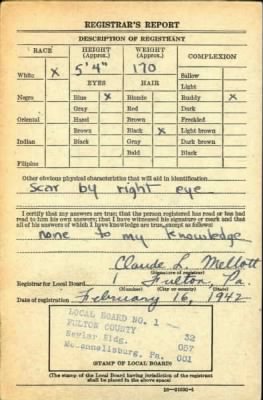 REGISTRAR'S REPORT
DESCRIPTION OF REGISTRANT
RACE HEIGHT (Approx.) WEIGHT (Approx.) COMPLEXION
White X 5'4" 170 Sallow
Light
EYES HAIR
Negro Blue X Blonde Ruddy X
Gray Red Dark
Oriental Hazel Brown Freckled
Brown Black X Light brown
Indian Black Gray Dark brown
Bald Black
Filipino
Other obvious physical characteristics that will aid in identification
Scar by right eye
I certify that my answers are true; that the person registered has read or has had
read to him his own answers; that I have witnessed his signature or mark and that
all of his answers of which I have knowledge are true, except as follows:
none to my knowledge
Claude L. Mellott
(Signature of registrar)
Registrar for Local Board Fulton, Pa.
(Number) (City or county) (State)
Date of registration February 16, 1942
LOCAL BOARD NO. 1 32
FULTON COUNTY 057
Bldg. 001
McConnellsburg, Pa.
(STAMP OF LOCAL BOARD)
(The stamp of the Local Board having jurisdiction of the registrant
shall be placed in the above space.)